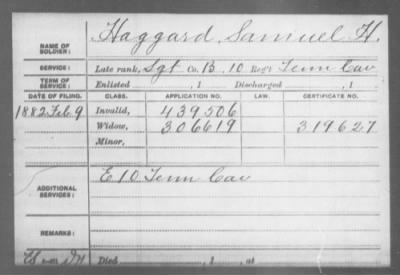 NAME OF SOLDIER: Haggard, Samuel H.
SERVICE: Late rank, Sgt Co. B, 10 Reg't Tenn Cav
TERM OF SERVICE: Enlisted , 1 Discharged , 1
DATE OF FILING. CLASS. APPLICATION NO. LAW. CERTIFICATE NO.
1882 Feb. 9 Invalid, 439506
Widow, 306619 319627
Minor,
ADDITIONAL SERVICES: E 10 Tenn Cav
REMARKS:
Died , 1 , at